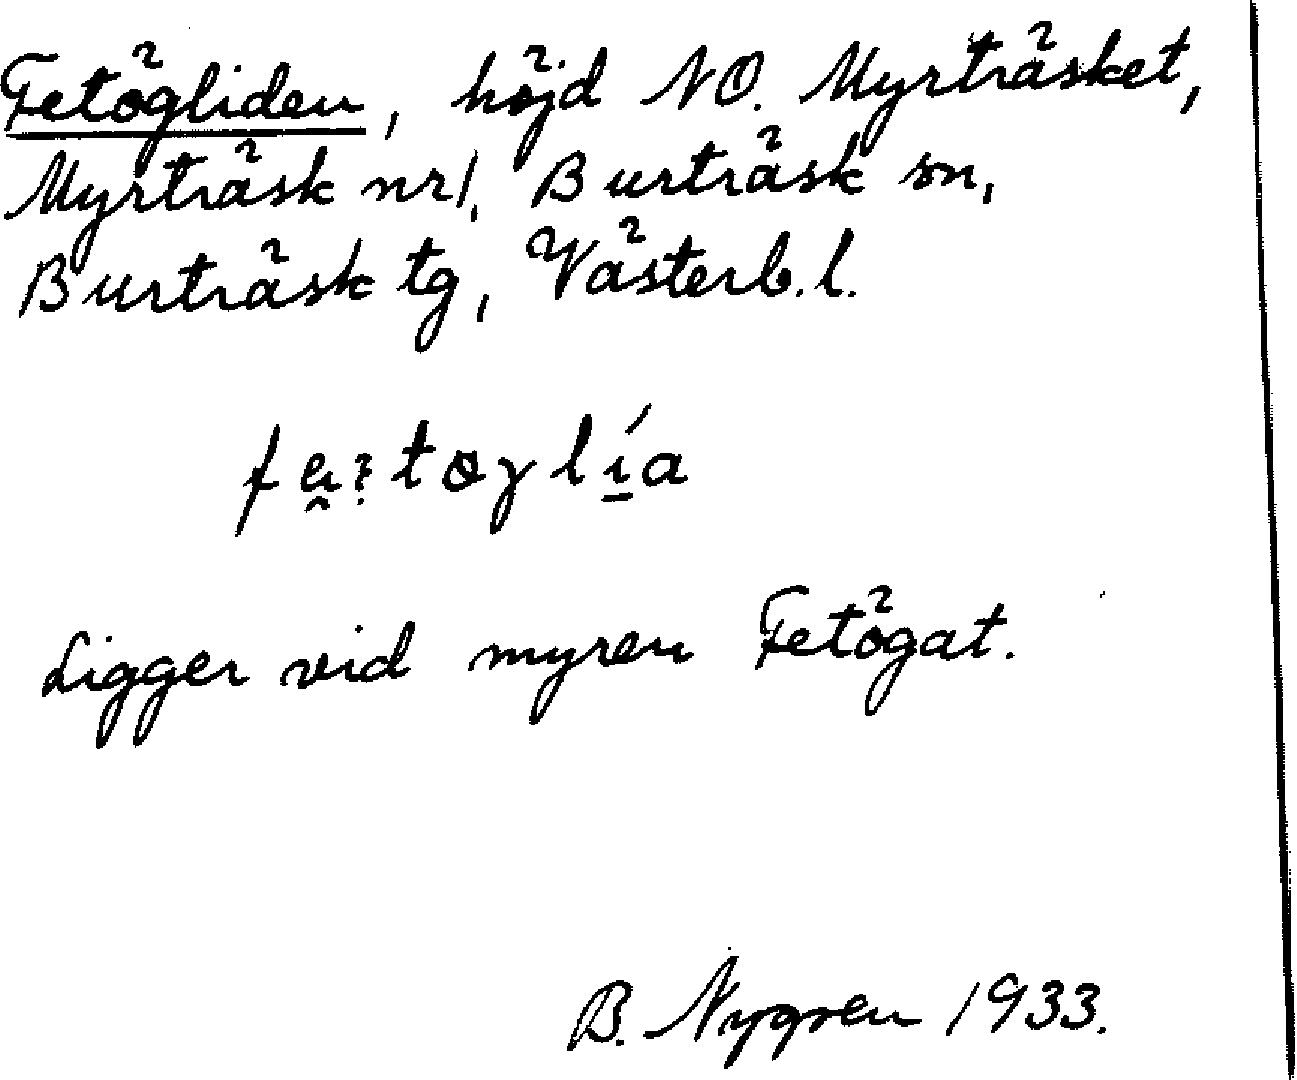 Fetögliden, höjd NO. Myrträsket,
Myrträsk nr 1, Burträsk sn,
Burträsk tg, Västerb. l.
Ligger vid myren Fetögat.
B. Nygren 1933.